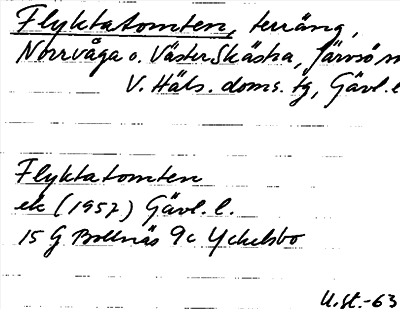 Flyktatomten, terräng,
Norrvåga o. Väster Skästra, Järvsö
V. Häls. doms. tg, Gävl. l
Flyktatomten
ek (1957) Gävl. l.
15 G Bollnäs 9c Yckelsbo
U.st.-63